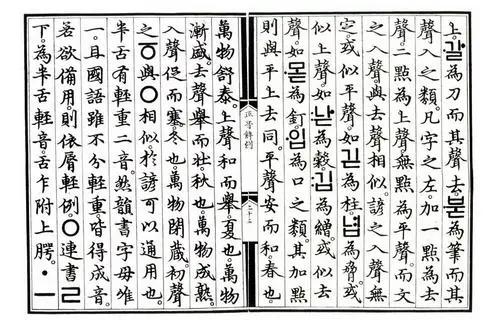 上。·갈爲刀而其聲去。·붇爲筆而其
聲入之類。凡字之左。加一點爲去
聲。二點爲上聲。無點爲平聲。而文
之入聲。與去聲相似。諺之入聲無
定。或似平聲。如긷爲柱。녑爲脅。或
似上聲。如:낟爲穀。:깁爲繒。或似去
聲。如·몯爲釘。·입爲口之類。其加點
則與平上去同。平聲安而和。春也。
正音解例
萬物舒泰。上聲和而擧。夏也。萬物
漸盛。去聲擧而壯。秋也。萬物成熟。
入聲促而塞。冬也。萬物閉藏。初聲
之ㆆ與ㅇ相似。於諺可以通用也。
半舌有輕重二音。然韻書字母唯
一。且國語雖不分輕重。皆得成音。
若欲備用。則依脣輕例。ㅇ連書ㄹ
下。爲半舌輕音。舌乍附上腭。ㆍㅡ